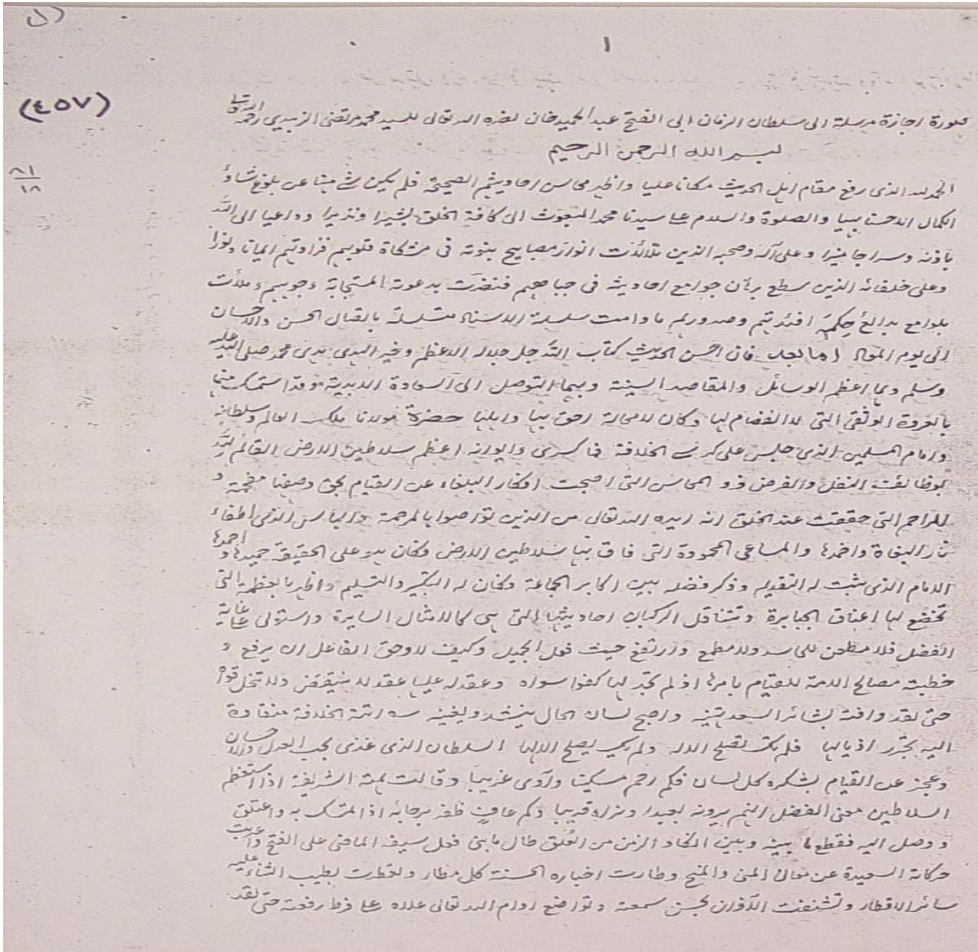 ل
١
(٤٥٧)
صورة اجازة مرسلة الى سلطان الزمان ابى الفتح عبد الحميد خان نصره الله تعالى للسيد محمد مرتضى الزبيدي رحمه الله تعالى
بسم الله الرحمن الرحيم
٨١
١٨
الحمد لله الذى رفع مقام اهل الحديث مكانا عليا واظهر محاسن احاديثهم الصحيحة فلم يكن شئ مبنا عن بلوغ شاو
الكمال الاحسنا بهيا والصلوة والسلام على سيدنا محمد المبعوث الى كافة الخلق بشيرا ونذيرا وداعيا الى الله
باذنه وسراجا منيرا وعلى آله وصحبه الذين تلألأت انوار مصابيح نبوته فى مشكاة قلوبهم فزادتهم ايمانا ونورا
وعلى خلفائه الذين سطع برهان جوامع احاديثه فى جباههم فنضرت بدعوته المستجابة وجوههم وملأت
بلوامع بدائع حكمه افئدتهم وصدورهم ما دامت سلسلة الاسناد متسلسلة بالقبال الحسن والاحسان
الى يوم المعاد اما بعد فان احسن الحديث كتاب الله جل جلاله الاعظم وخير الهدى هدى محمد صلى الله عليه
وسلم وهما اعظم الوسائل والمقاصد السنية وبهما التوصل الى السعادة الابدية وقد استمسك منهما
بالعروة الوثقى التى لا انفصام لها وكان لا محالة احق بها واهلها حضرة مولانا ملك العالم وسلطانه
وامام المسلمين الذى جلس على كرسى الخلافة فى وايوانه اعظم سلاطين الارض القائم لله
بوظائف النفل والفرض ذو المحاسن التى اصبحت افكار البلغاء عن القيام بحق وصفها مفحمة و
المراحم التى حققت عند الخلق انه ايده الله تعالى من الذين تواصوا بالمرحمة والباس الذى اطفاء
نار البغاة واخمدها والمساعى المحمودة التى فاق بها سلاطين الارض فكان هو على الحقيقة حميدها واحمدها
الامام الذى ثبت له التقديم وذكر فضله بين اكابر الجماعة وكان له التكبير والتسليم واظهر بالعظمة التى
تخضع لها اعناق الجبابرة وتتناقل الركبان احاديثها التى هى كالامثال السايرة واستولى على غاية
الفضل فلا مطعن للحاسد ولا مطمع وارتفع حيث فعل الجميل وكيف لا وحق الفاعل ان يرفع و
خطبته مصالح الامة للقيام بامرها اذ لم تجد لها كفوا سواه وعقد له عليها عقد لا ينتقض ولا تنحل قواه
حتى لقد وافته بشائر السعد تهنيه واصبح لسان الحال ينشد ويغنيه اتته الخلافة منقادة
اليه تجرر اذيالها فلم تك تصلح الا له ولم يك يصلح الا لها السلطان الذى غذى بحب العدل والاحسان
وعجز عن القيام بشكره كل لسان فكم رحم مسكينا وآوى غريبا وقالت همته الشريفة اذا استعظم
السلاطين معنى الفضل انهم يرونه بعيدا ونراه قريبا وكم عاف ظفر برجائه اذا تمسك به واعتلق
ووصل اليه فقطع ما بينه وبين انكاد الزمن من العلق طال ما بنى فعل سيفه الماضى على الفتح واعربت
حركاته السعيدة عن معانى المن والمنح وطارت اخباره الحسنة كل مطار وتعطرت بطيب الثناء عليه
سائر الاقطار وتشنفت الآذان بحسن سمعته وتواضع ادام الله تعالى علاه على فرط رفعته حتى لقد